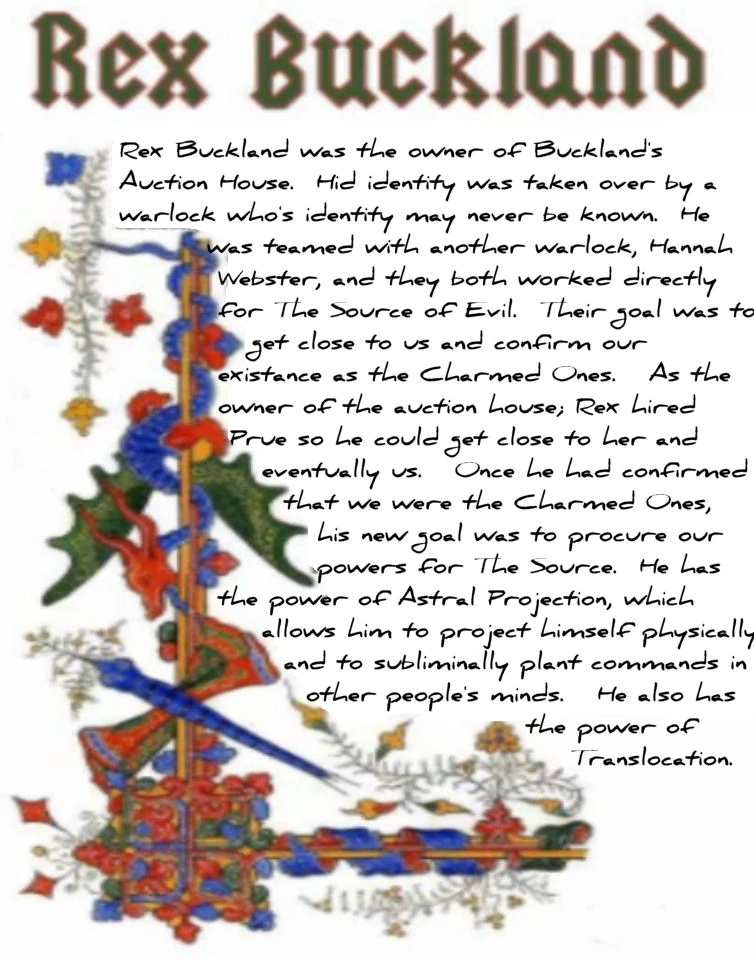 Rex Buckland
Rex Buckland was the owner of Buckland's
Auction House. Hid identity was taken over by a
warlock who's identity may never be known. He
was teamed with another warlock, Hannah
Webster, and they both worked directly
for The Source of Evil. Their goal was to
get close to us and confirm our
existance as the Charmed Ones. As the
owner of the auction house; Rex hired
Prue so he could get close to her and
eventually us. Once he had confirmed
that we were the Charmed Ones,
his new goal was to procure our
powers for The Source. He has
the power of Astral Projection, which
allows him to project himself physically
and to subliminally plant commands in
other people's minds. He also has
the power of
Translocation.